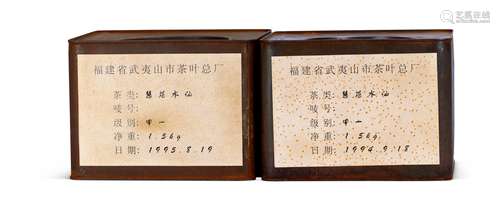 福建省武夷山市茶叶总厂
茶类:慧苑水仙
唛号:
级别:甲一
净重:1.5kg
日期:1995.8.19
福建省武夷山市茶叶总厂
茶类:慧苑水仙
唛号:
级别:甲一
净重:1.5kg
日期:1994.9.18